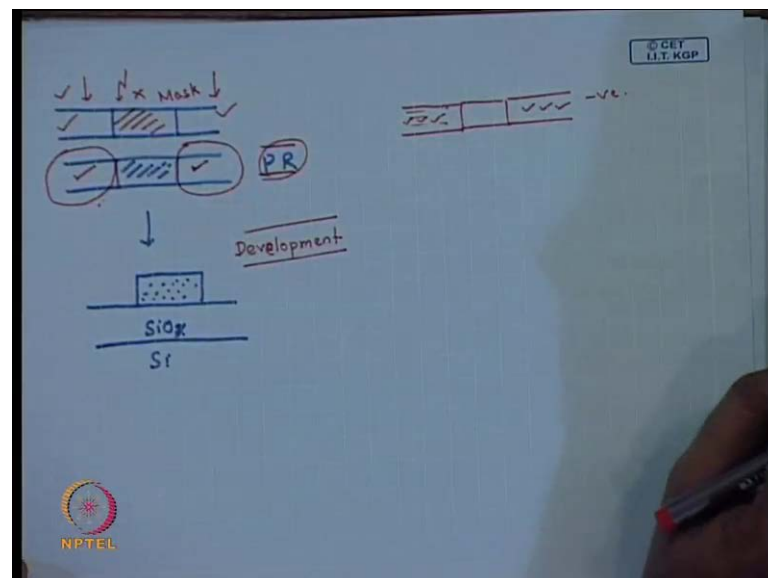 © CET
I.I.T. KGP
✓ ↓ ↓ x Mask ↓ ✓
✓
✓ ✓ PR
✓✓✓ ✓✓✓ -ve.
Development
SiOx
Si
NPTEL